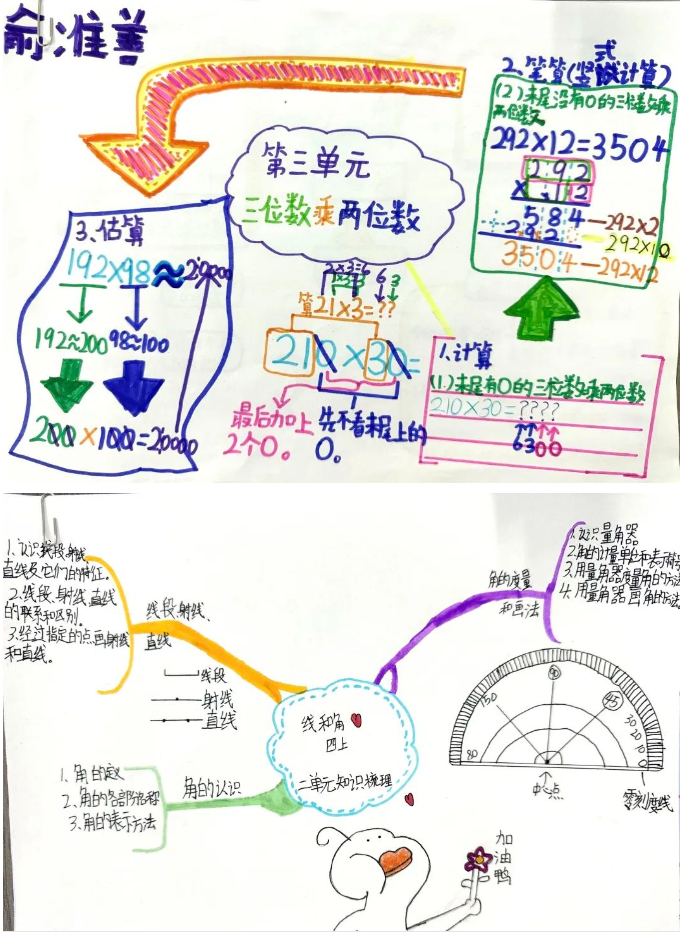 俞准善
第三单元
三位数乘两位数
2×3=6
算21×3=??
6 3
210×30=
最后加上
2个0。
先不看末尾上的
0。
1.计算
(1.)末尾有0的三位数乘两位数
210×30=????
6300
2.笔算(竖式计算)
(2.)末尾没有0的三位数乘
两位数
292×12=3504
292
×12
584—292×2
292 292×10
3504—292×12
3、估算
192×98≈20000
192≈200 98≈100
200×100=20000
线和角
四上
二单元知识梳理
线段、射线、
直线
1、认识线段、射线
直线及它们的特征。
2.线段、射线、直线
的联系和区别。
3.经过指定的点画射线
和直线。
线段
射线
直线
角的认识
1、角的定义
2、角的各部分名称
3、角的表示方法
角的度量
和画法
1.认识量角器
2.角的计量单位和表示符号
3.用量角器度量角的方法
4.用量角器画角的方法
150
90
45
30
20
10
0
80
中心点
零刻度线
加
油
鸭